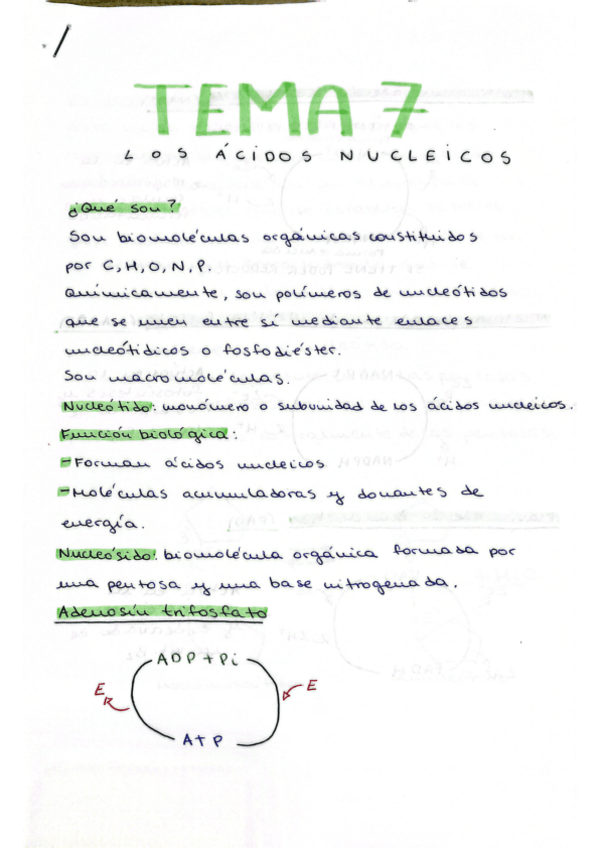 TEMA 7
LOS ÁCIDOS NUCLEICOS
¿Qué son?
Son biomoléculas orgánicas constituidos
por C, H, O, N, P.
Químicamente, son polímeros de nucleótidos
que se unen entre sí mediante enlaces
nucleótidicos o fosfodiéster.
Son macromoléculas.
Nucleótido: monómero o subunidad de los ácidos nucleicos.
Función biológica:
-Forman ácidos nucleicos
-Moléculas acumuladoras y donantes de
energía.
Nucleósido: biomolécula orgánica formada por
una pentosa y una base nitrogenada.
Adenosín trifosfato
ADP+Pi
E E
ATP